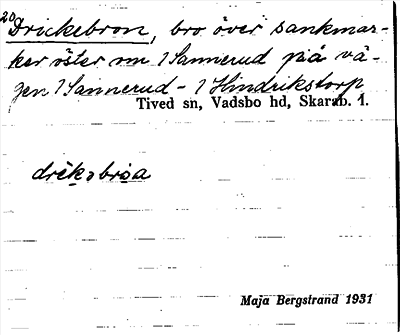 20 Drickebron, bro över sankmar-
ker öster om 1 Sannerud på vä-
gen 1 Sannerud - 1 Hindrikstorp
Tived sn, Vadsbo hd, Skarab. l.
Maja Bergstrand 1931